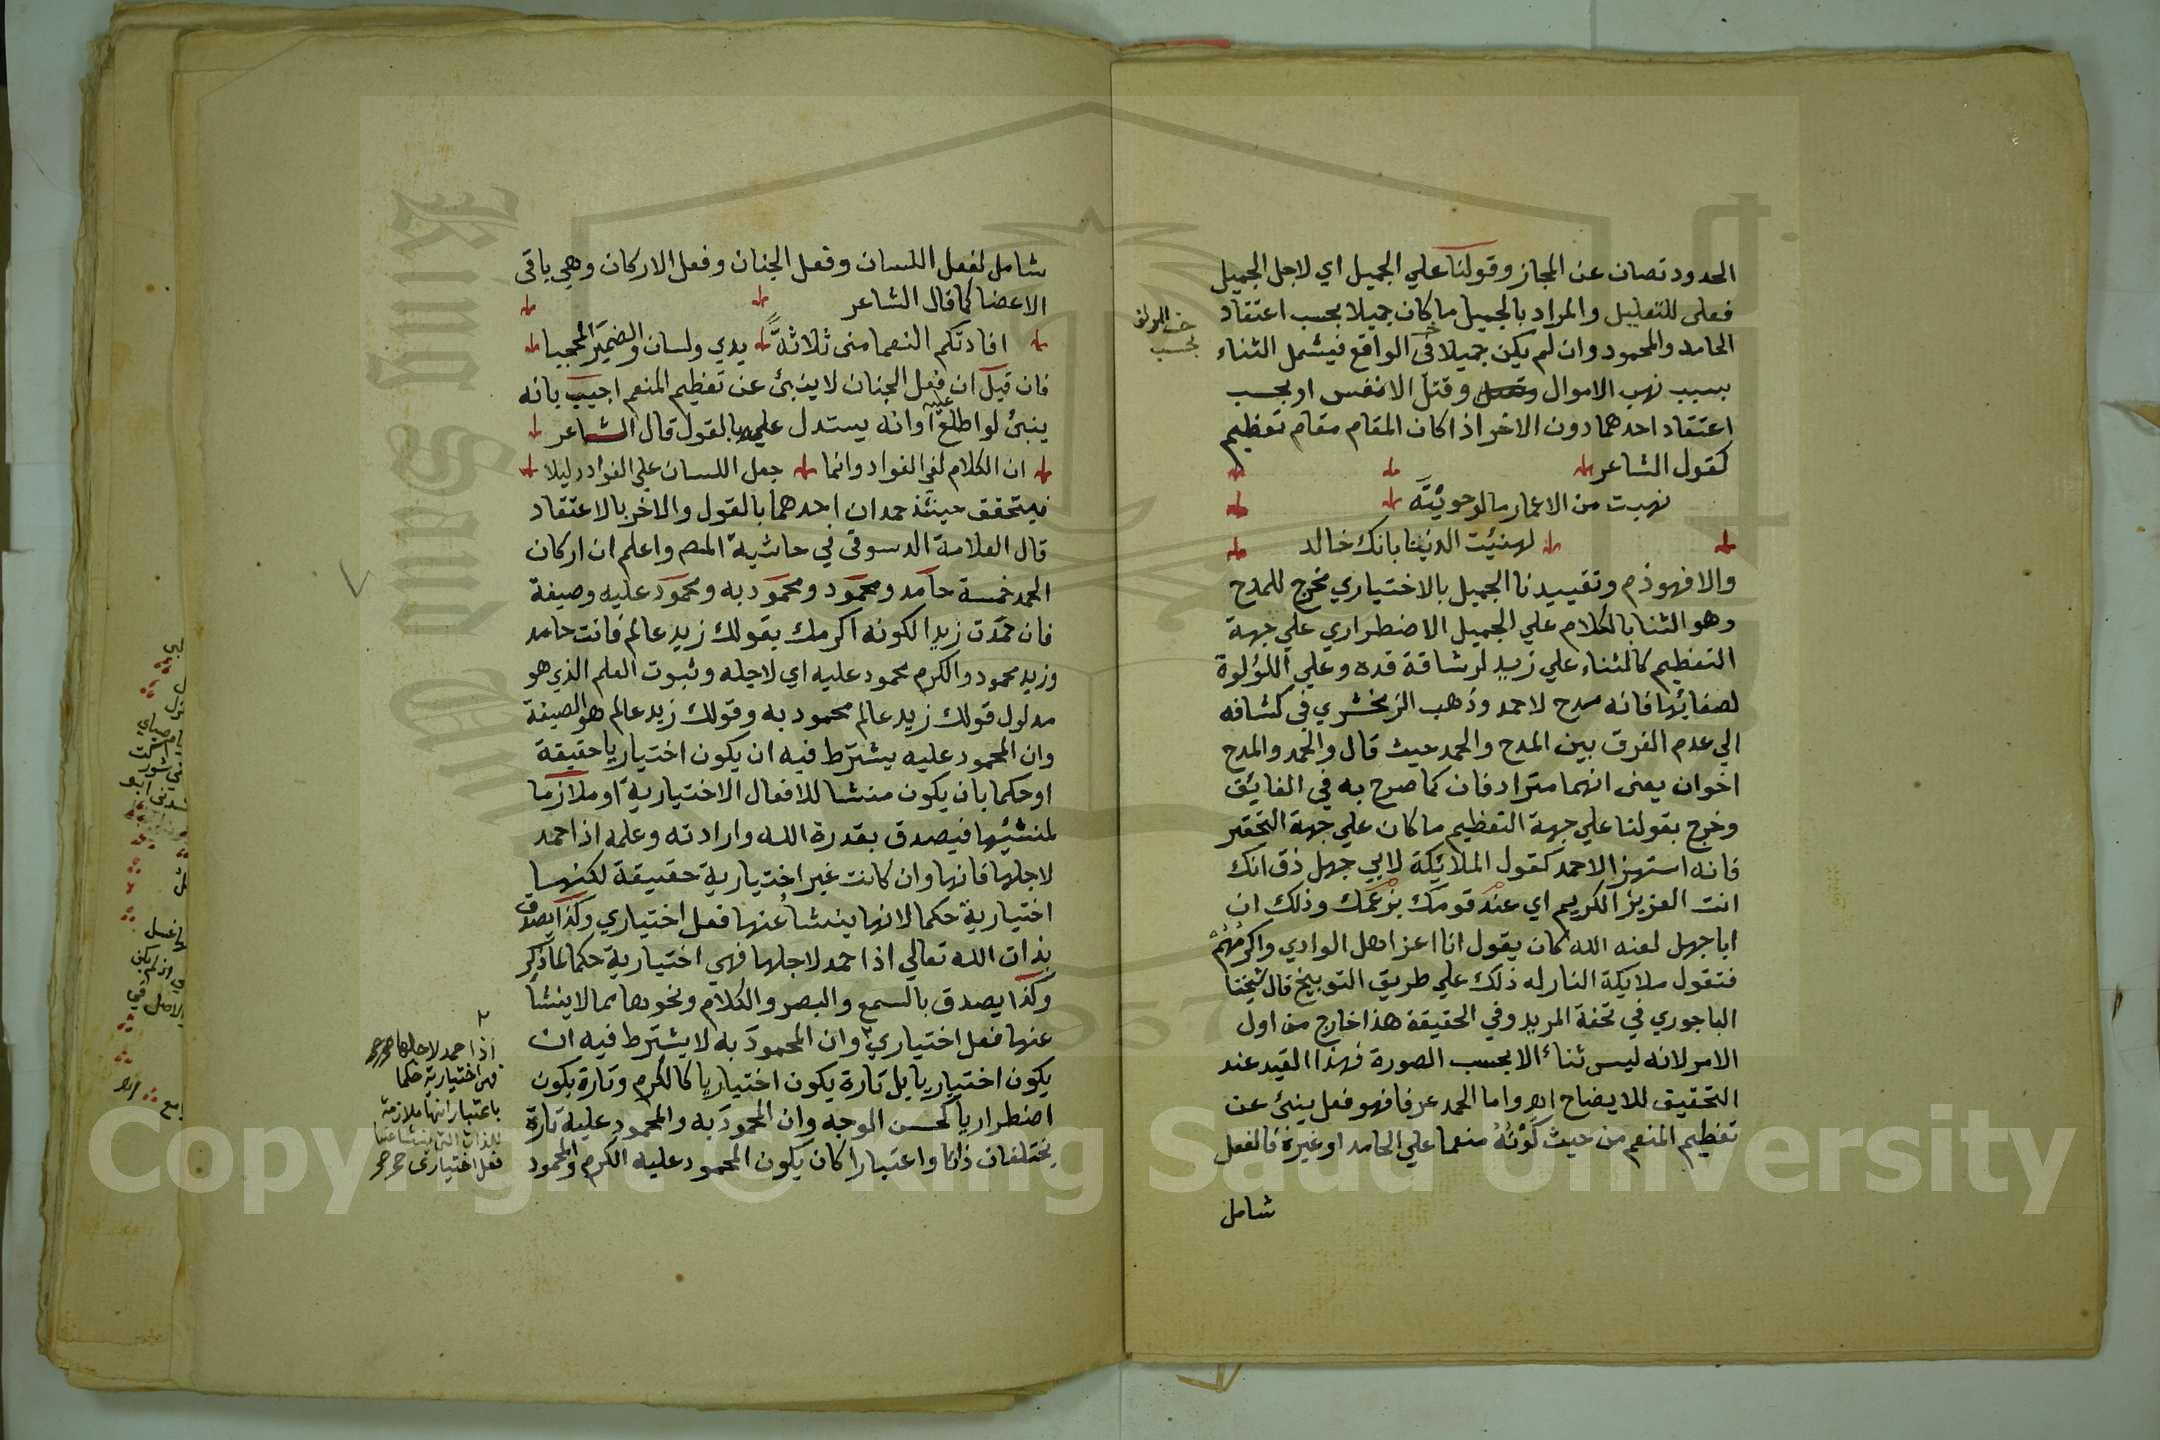 الحدود تصان عن المجاز وقولنا علي الجميل اي لاجل الجميل
فعلى للتعليل والمراد بالجميل ما كان جميلا بحسب اعتقاد
الحامد والمحمود وان لم يكن جميلا في الواقع فيشمل الثناء
بسبب نهب الاموال وقتل الانفس او بحسب
اعتقاد احدهما دون الاخر اذا كان المقام مقام تعظيم
كقول الشاعر
نهبت من الاعمار مالو حويته
لهنيت الدنيا بانك خالد
والا فهو ذم وتقييدنا الجميل بالاختياري مخرج للمدح
وهو الثنا بالكلام علي الجميل الاضطراري علي جهة
التعظيم كالثناء علي زيد لرشاقة قده وعلي اللؤلوة
لصفائها فانه مدح لاحمد وذهب الزمخشري في كشافه
الي عدم الفرق بين المدح والحمد حيث قال والحمد والمدح
اخوان يعنى انهما مترادفان كما صرح به في الفايق
وخرج بقولنا علي جهة التعظيم ما كان علي جهة التحقير
فانه استهزا لاحمد كقول الملائكة لابي جهل ذق انك
انت العزيز الكريم اي عند قومك بزعمك وذلك ان
ابا جهل لعنه الله كان يقول انا اعز اهل الوادي واكرمهم
فتقول ملايكة النار له ذلك علي طريق التوبيخ قال شيخنا
الباجوري في تحفة المريد وفي الحقيقة هذا خارج من اول
الامر لانه ليس ثناء الا بحسب الصورة فهذا القيد عند
التحقيق للايضاح اه واما الحمد عرفا فهو فعل ينبئ عن
تعظيم المنعم من حيث كونه منعما علي الحامد او غيره فالفعل
شامل
بحسب
شامل لفعل اللسان وفعل الجنان وفعل الاركان وهي باقى
الاعضا كما قال الشاعر
افادتكم النعما منى ثلاثة يدي ولسان والضمير المحجبا
فان قيل ان فعل الجنان لا ينبئ عن تعظيم المنعم اجيب بانه
ينبئ لو اطلع عليه او انه يستدل عليه بالقول قال الشاعر
ان الكلام لفي الفواد وانما جعل اللسان علي الفواد دليلا
فيتحقق حينئذ حمدان احدهما بالقول والاخر بالاعتقاد
قال العلامة الدسوقي في حاشية المص واعلم ان اركان
الحمد خمسة حامد ومحمود ومحمود به ومحمود عليه وصيغة
فان حمدت زيدا لكونه اكرمك بقولك زيد عالم فانت حامد
وزيد محمود والكرم محمود عليه اي لاجله وثبوت العلم الذي هو
مدلول قولك زيد عالم محمود به وقولك زيد عالم هو الصيغة
وان المحمود عليه يشترط فيه ان يكون اختياريا حقيقة
او حكما بان يكون منشا للافعال الاختيارية او ملازما
لمنشئها فيصدق بقدرة الله وارادته وعلمه اذا حمد
لاجلها فانها وان كانت غير اختيارية حقيقة لكنها
اختيارية حكما لانها ينشا عنها فعل اختياري وكذا يصدق
بذات الله تعالي اذا حمد لاجلها فهي اختيارية حكما لما ذكر
وكذا يصدق بالسمع والبصر والكلام ونحوها مما لا ينشا
عنها فعل اختياري وان المحمود به لا يشترط فيه ان
يكون اختياريا بل تارة يكون اختياريا كالكرم وتارة يكون
اضطراريا كحسن الوجه وان المحمود به والمحمود عليه تارة
يختلفان ذاتا واعتبارا كان يكون المحمود عليه الكرم والمحمود
اذا حمد لاجلها
فهي اختيارية حكما
باعتبار انها ملازمة
للذات التي ينشا عنها
فعل اختياري